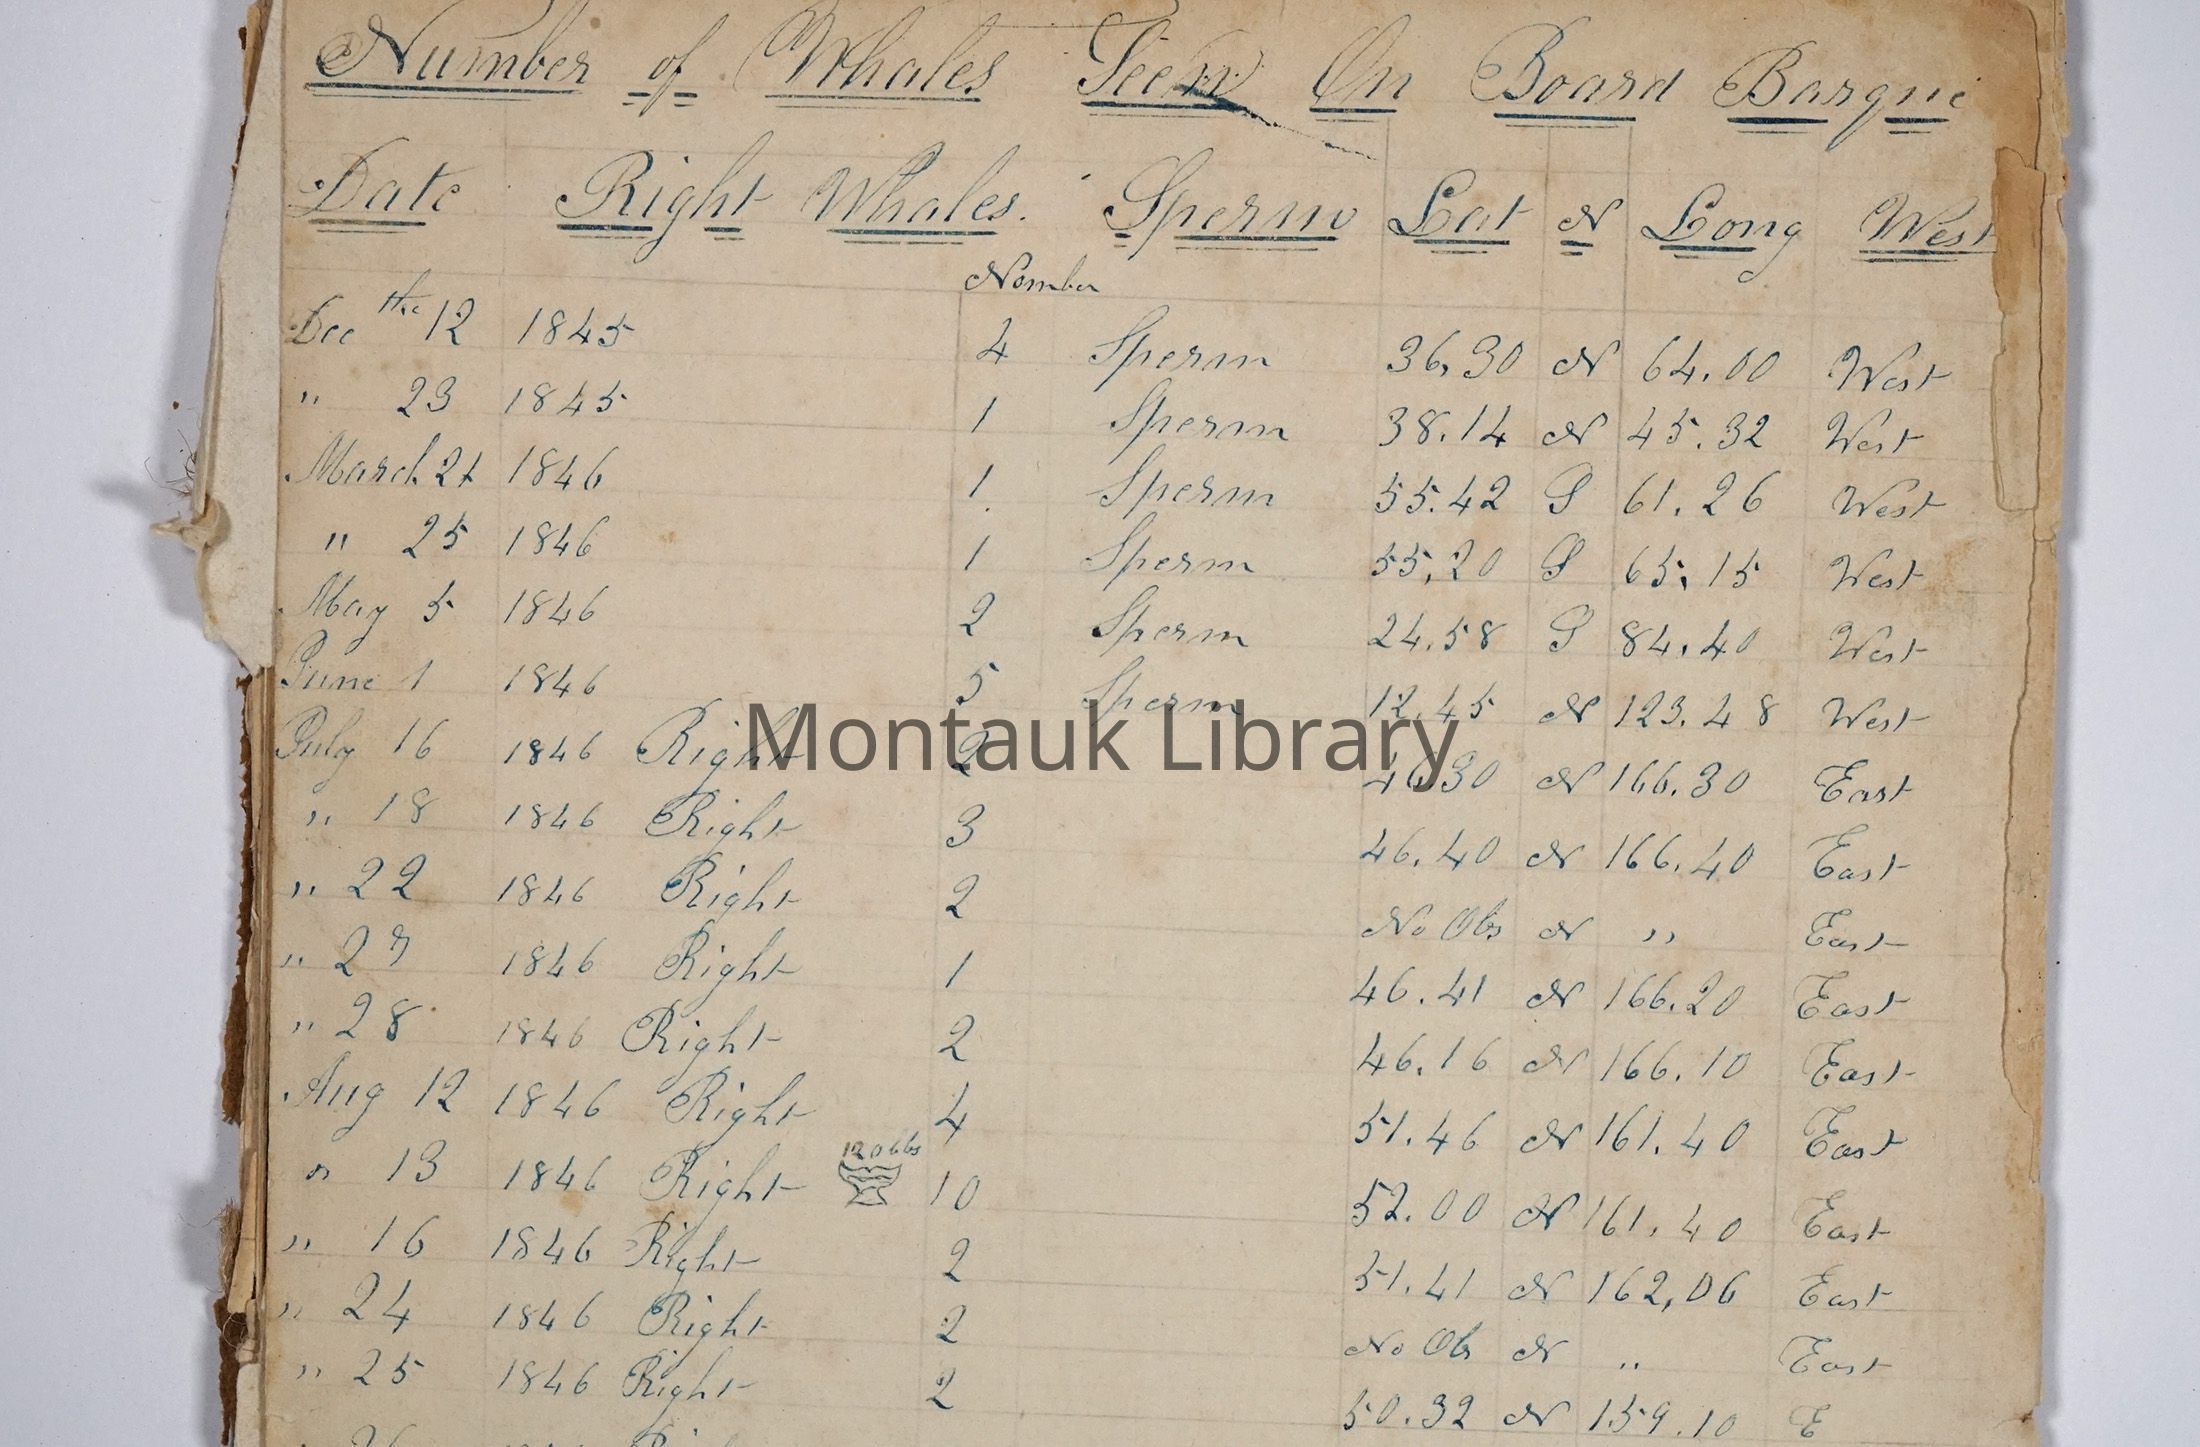 Number of Whales Seen On Board Barque
Date Right Whales. Sperm Lat N Long West
Nomber
Dec the 12 1845 4 Sperm 36,30 N 64.00 West
" 23 1845 1 Sperm 38.14 N 45.32 West
March 21 1846 1 Sperm 55.42 S 61.26 West
" 25 1846 1 Sperm 55,20 S 65,15 West
May 5 1846 2 Sperm 24.58 S 84,40 West
June 1 1846 5 Sperm 12,45 N 123.48 West
July 16 1846 Right 2 46 30 N 166.30 East
Montauk Library
" 18 1846 Right 3 46.40 N 166.40 East
" 22 1846 Right 2 No Obs N " East
" 27 1846 Right 1 46.41 N 166.20 East
" 28 1846 Right 2 46.16 N 166.10 East
Aug 12 1846 Right 4 51.46 N 161.40 East
" 13 1846 Right 120 bbs 10 52.00 N 161.40 East
" 16 1846 Right 2 51.41 N 162,06 East
" 24 1846 Right 2 No Obs N " East
" 25 1846 Right 2 50.32 N 159.10 E